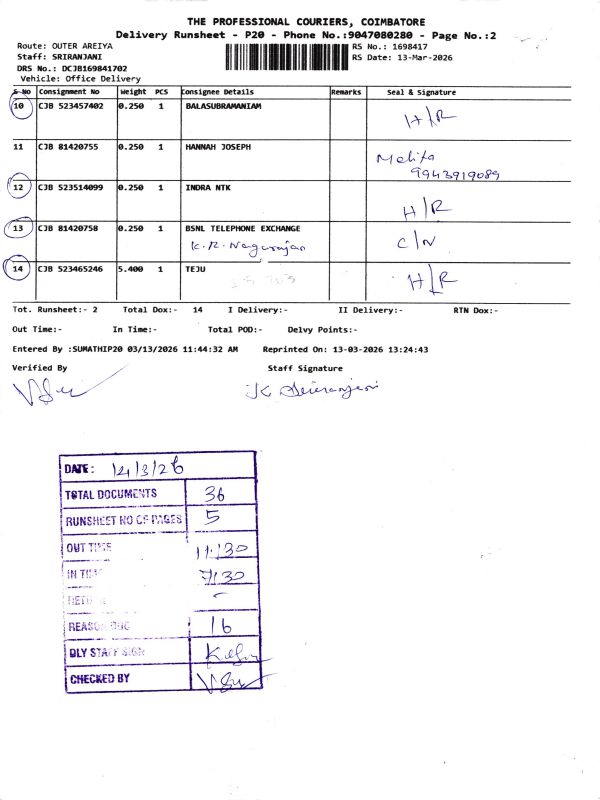 THE PROFESSIONAL COURIERS, COIMBATORE
Delivery Runsheet - P20 - Phone No.:9047080280 - Page No.:2
Route: OUTER AREIYA
RS No.: 1698417
Staff: SRIRANJANI
RS Date: 13-Mar-2026
DRS No.: DCJB169841702
Vehicle: Office Delivery
S No Consignment No Weight PCS Consignee Details Remarks Seal & Signature
10 CJB 523457402 0.250 1 BALASUBRAMANIAM H/R
11 CJB 81420755 0.250 1 HANNAH JOSEPH
9943919089
12 CJB 523514099 0.250 1 INDRA NTK H/R
13 CJB 81420758 0.250 1 BSNL TELEPHONE EXCHANGE
K.R. Nagarajan C/N
14 CJB 523465246 5.400 1 TEJU H/R
Tot. Runsheet:- 2 Total Dox:- 14 I Delivery:- II Delivery:- RTN Dox:-
Out Time:- In Time:- Total POD:- Delvy Points:-
Entered By :SUMATHIP20 03/13/2026 11:44:32 AM Reprinted On: 13-03-2026 13:24:43
Verified By Staff Signature
DATE: 14/3/26
TOTAL DOCUMENTS 36
RUNSHEET NO OF PAGES 5
OUT TIME 11:30
IN TIME 7:30
REASON 16
DLY STAFF SIGN
CHECKED BY